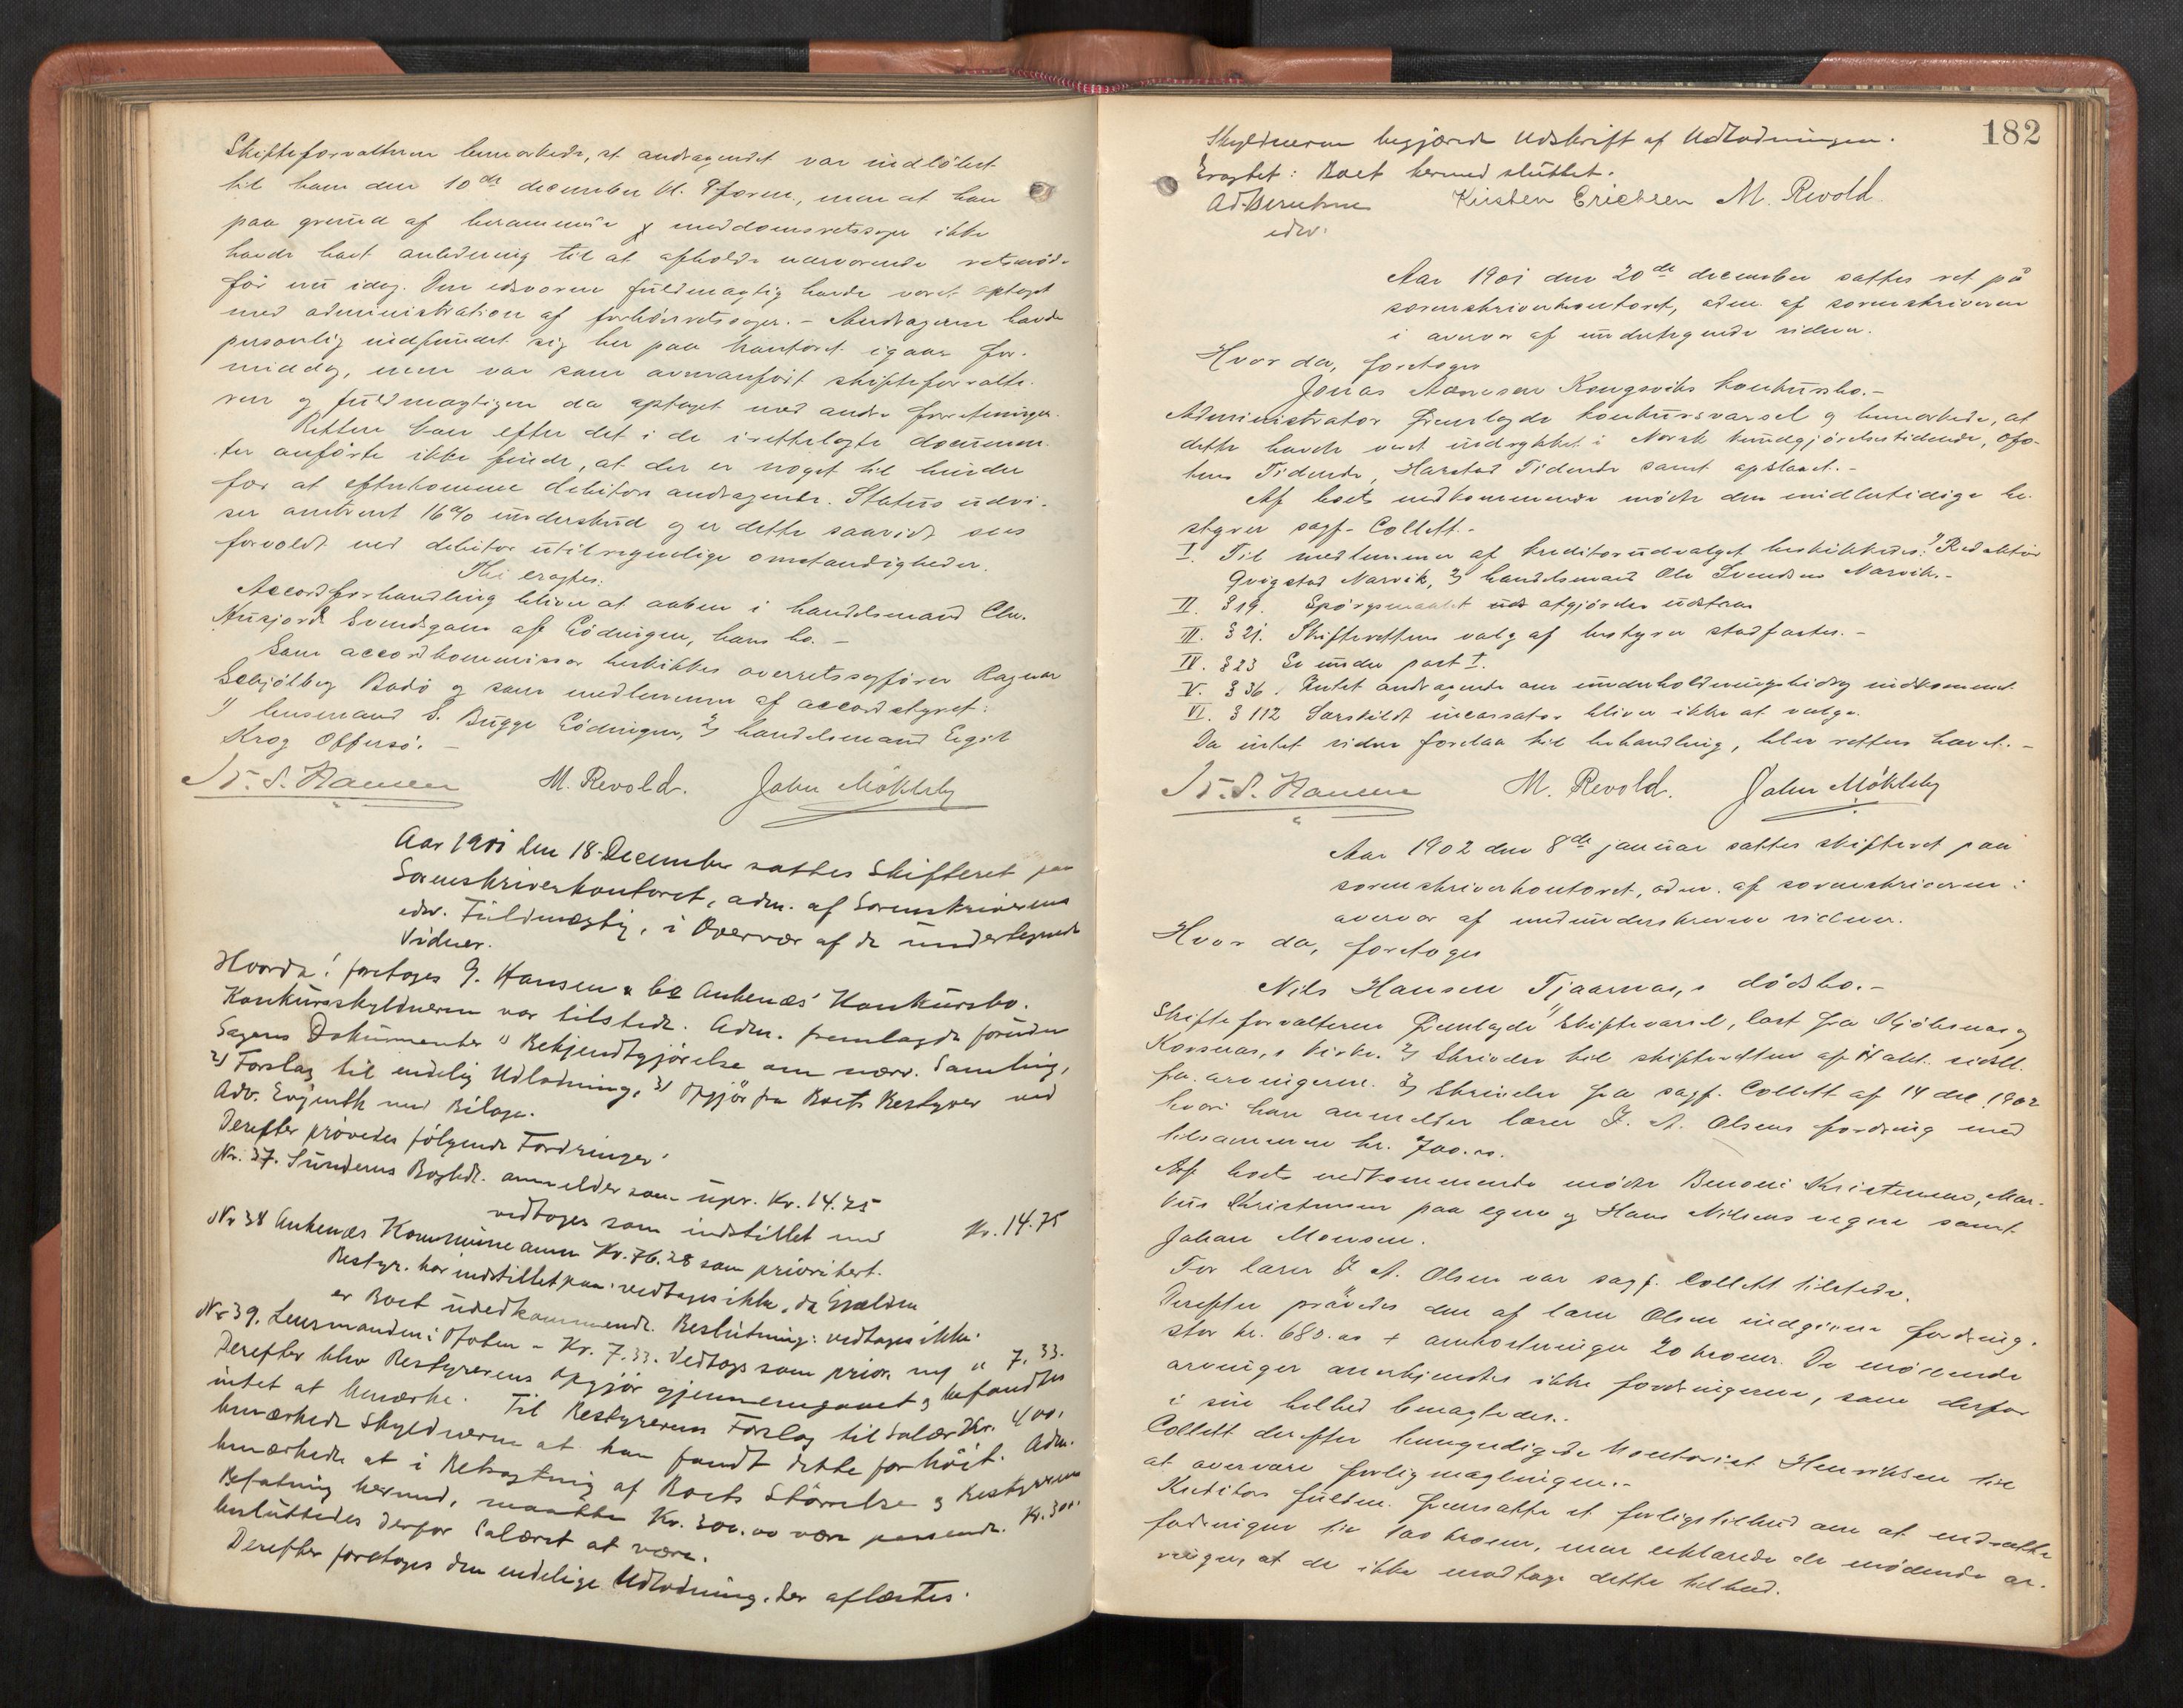 Skifteforvalteren bemærkede, at andragendet var indløbet
til ham den 10de december kl. 9 form., men at han
paa grund af berammede meddomsretssager ikke
havde havt anledning til at afholde nærværende retsmøde
før nu idag. Den edsvorne fuldmægtig havde været optaget
med administration af forhørsretssager. – Andrageren havde
personlig indfundet sig her paa kontoret igaar for-
middag, men var som ovenanført skifteforvalte-
ren og fuldmægtigen da optaget med andre forretninger.
Retten kan efter det i de i rettelagte documen-
ter anførte ikke finde, at der er noget til hinder
for at efterkomme debitors andragende. Status udvi-
ser omtrent 16% underskud og er dette saavidt sees
forvoldt ved debitor utilregnelige omstændigheder.
Thi eragtes:
Accordforhandling bliver at aabne i handelsmand Chr.
Husjord Svendsgam af Lødingen, hans bo. –
Som accordkommissær beskikkes overretssagfører Ragnar
Schjølberg Bodø og som medlemmer af accordstyret:
1) lensmand S. Bugge Lødingen, 2) handelsmand Egil
Krog Offersø. –
M. Revold. John Møkleby
Aar 1901 den 18. December sattes Skifteret paa
Sorenskriverkontoret, adm. af Sorenskriverens
edsv. Fuldmægtig, i Overvær af de undertegnede
Vidner.
Hvorda! foretoges G. Hansen & Co Ankenæs' Konkursbo.
Konkursskyldneren var tilstede. Adm. fremlagde foruden
Sagens Dokumenter 1) Bekjendtgjørelse om nærv. Samling,
2) Forslag til endelig Udlodning, 3) Opgjør fra Boets Bestyrer ved
Adv. Evjenth med Bilage.
Derefter prøvedes følgende Fordringer:
Nr. 37. Sunderns Boghdl. anmelder som upr. Kr. 14.75
vedtoges som indstillet med Kr. 14.75
Nr 38 Ankenæs Kommune anm. Kr. 76.28 som prioritert.
Bestyr. har indstillet paa: vedtages ikke, da Gjælden
er Boet uvedkommende. Beslutning: vedtages ikke.
Nr 39. Lensmanden i Ofoten – Kr. 7.33. Vedtogs som prior. med " 7.33.
Derefter blev Bestyrerens Opgjør gjennemgaaet og befandtes
intet at bemærke. Til Bestyrerens Forslag til Salær Kr. 400,
bemærkede Skyldneren at han fandt dette for høit. Adm.
bemærkede at i Betragtning af Boets Størrelse og Bestyrerens
Befatning hermed, maatte Kr. 300.00 være passende. Kr. 300.
besluttedes derfor Salæret at være.
Derefter foretoges den endelige Udlodning, der aflæstes.
182
Skyldneren begjærede Udskrift af Udlodningen.
Eragtet: Boet hermed sluttet.
Kristen Erichsen M. Revold.
edsv.
Aar 1901 den 20de december sattes ret på
sorenskriverkontoret, adm. af sorenskriveren
i overvær af undertegnede vidner.
Hvor da, foretoges
Jonas Aanesen Kongsviks konkursbo. –
Administrator fremlagde konkursvarsel og bemærkede, at
dette havde været indrykket i Norsk kundgjørelsestidende, Ofo-
tens Tidende, Harstad Tidende samt opslaaet. –
Af boets vedkommende mødte den midlertidige be-
styrer sagf. Collett. –
I. Til medlemmer af kreditorudvalget beskikkedes: 1) Redaktør
Qvigstad Narvik, 2) handelsmand Ole Svendsen Narvik. –
II. § 19. Spørgsmaalet afgjørdes udstaar
III. § 21. Skifterettens valg af bestyrer stadfæstes. –
IV. § 23 Se under post I.
V. § 36. Intet andragende om underholdningsbidrag indkommet.
VI. § 112 Særskildt incassator bliver ikke at vælge.
Da intet videre forelaa til behandling, blev retten hævet. –
M. Revold. John Møkleby
Aar 1902 den 8de januar sattes skifteret paa
sorenskriverkontoret, adm. af sorenskriveren i
overvær af medunderskrevne vidner.
Hvor da, foretoges
Nils Hansen Tjaarnæs, s dødsbo. –
Skifteforvalteren fremlagde 1) Skiftevarsel, læst fra Kjøbsnæs og
Korsnæs, s kirke. 2) Skrivelse til skifteretten af okt. sidstl.
fra arvingerne. 3) Skrivelse fra sagf. Collett af 14 dec. 1902
hvori han anmelder lærer J. A. Olsens fordring med
tilsammen kr. 700.00.
Af boets vedkommende mødte Benoni Kristensen, Mar-
kus Kristensen paa egne og Hans Nilsens vegne samt
Johan Monsen.
For lærer J. A. Olsen var sagf. Collett tilstede.
Derefter prøvedes den af lærer Olsen indgivne fordring,
stor kr. 680.00 + omkostninger 20 kroner. De mødende
arvinger anerkjendte ikke fordringerne, som derfor
i sin helhed benægtedes. –
Collett derefter bemyndigede kontorist Henriksen til
at overvære forligmæglingen. –
Kreditors fuldm. fremsatte et forligstilbud om at nedsætte
fordringen til 100 kroner, men erklærede de mødende ar-
vinger, at de ikke modtage dette tilbud.